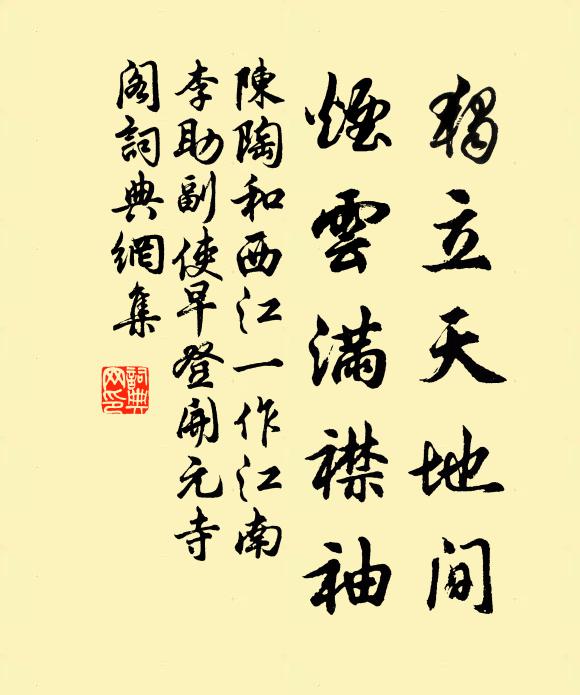 獨立天地間
煙雲滿襟袖
陳陶和西江一作江南
李助副使早登開元寺
閣詞典網集
詞典網印